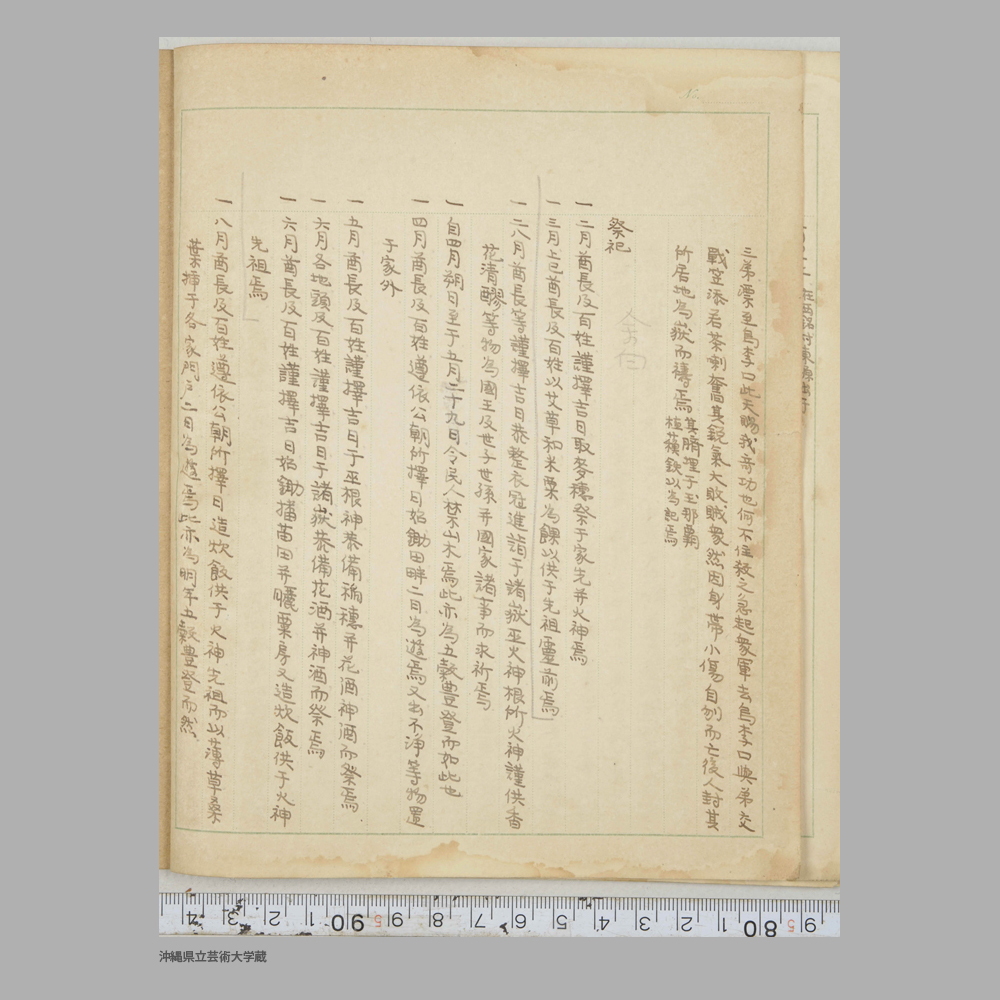 三弟漂至鳥李口此天賜我奇功也何不往殺之急起衆軍去鳥李口與弟交
戰笠添若茶喇奮其銳氣大敗賊衆然因身帶小傷自刎而亡後人封其
所居地為嶽而禱焉 其臍埋于玉那覇
植蘓鉄以為記焉
祭祀
一 二月酋長及百姓謹擇吉日取麥穗祭于家先并火神焉
一 三月上巳酋長及百姓以艾草和米粟為餜以供于先祖靈前焉
一 二八月酋長等謹擇吉日恭整衣冠進詣于諸嶽巫火神根所火神謹供香
花清醪等物為國王及世子世孫并國家諸事而求祈焉
一 自四月朔日至于五月二十九日令民人禁山木焉此亦為五穀豊登而如此也
一 四月酋長及百姓遵依公朝所擇日始鋤田畔二日為遊焉又出不淨等物置
于家外
一 五月酋長及百姓謹擇吉日于巫根神恭備稲穗并花酒神酒而祭焉
一 六月各地頭及百姓謹擇吉日于諸嶽恭備花酒并神酒而祭焉
一 六月酋長及百姓謹擇吉日始鋤播苗田并曬粟房又造炊飯供于火神
先祖焉
一 八月酋長及百姓遵依公朝所擇日造炊飯供于火神先祖而以薄草桑
葉揷于各家門戶二日為遊焉此亦為明年五穀豊登而然
沖縄県立芸術大学蔵